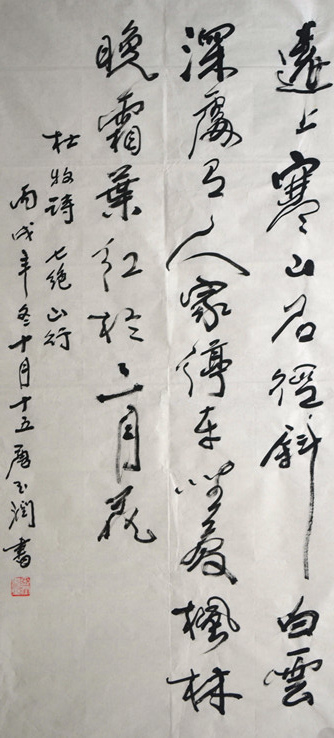 遠上寒山石徑斜白雲
深處有人家停車坐愛楓林
晚霜葉紅於二月花
杜牧詩七絕山行
丙戌年冬十月十五玉潤書